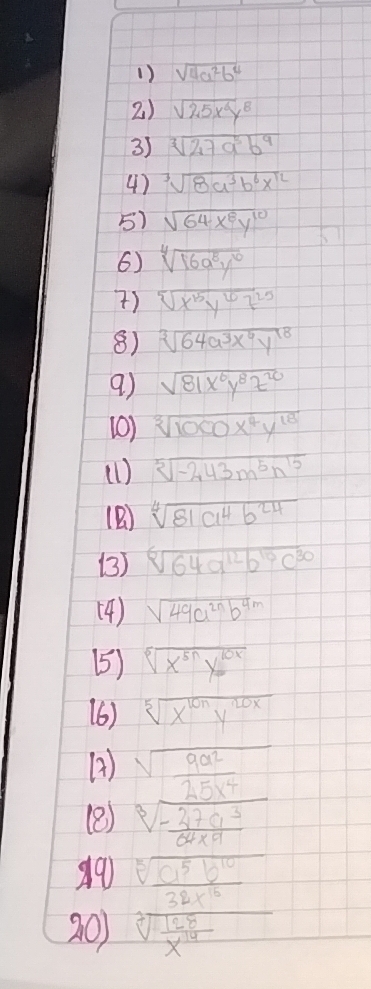 1) √4a²b⁴
2) √25x⁴y⁸
3) ∛27a³b⁹
4) ³√8a³b⁶x¹²
5) √64x⁸y¹⁰
6) ⁴√16a⁸y¹⁶
7) ⁵√x¹⁵y²⁰z²⁵
8) ³√64a³x⁶y¹⁸
9) √81x⁶y⁸z²⁰
10) ³√1000x⁹y¹⁸
11) ⁵√-243m⁵n¹⁵
12) ⁴√81a⁴b²⁴
13) ⁶√64a¹²b¹⁸c³⁰
14) √49a²ⁿb⁴ᵐ
15) ⁵√x⁵ⁿy¹⁰ˣ
16) ⁵√x¹⁰ⁿy²⁰ˣ
17) √9a²/25x⁴
18) ³√-27a³/64x⁹
19) ⁵√a⁵b¹⁰/32x¹⁵
20) ⁷√128/x¹⁴